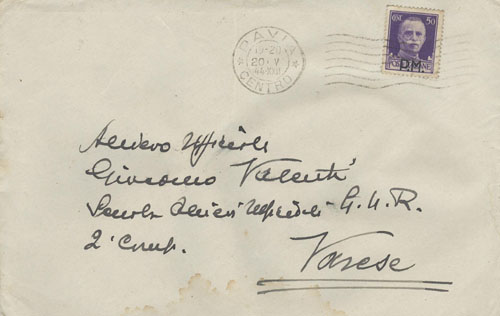 PAVIA
19-20
20·V
44·XXII
* CENTRO *
CENT. 50
P.M.
Allievo Ufficiale
Giacomo Valenti
Scuola Allievi Ufficiali G.N.R.
2ª Comp.
Varese